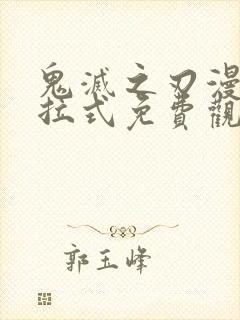 鬼滅之刃漫
拉式免費觀
郭玉峰